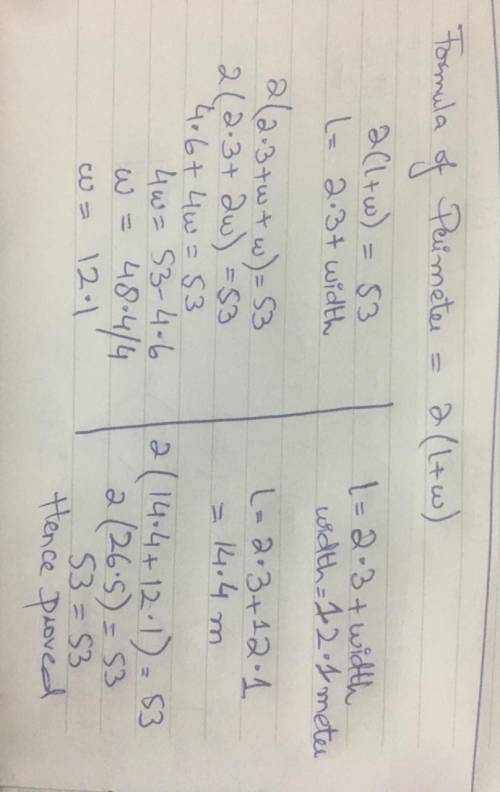 Formula of Perimeter = 2(l+w)
2(l+w) = 53
l = 2.3 + width
2(2.3+w+w) = 53
2(2.3+2w) = 53
4.6+4w = 53
4w = 53-4.6
w = 48.4/4
w = 12.1
l = 2.3 + width
width = 12.1 meter
l = 2.3+12.1
= 14.4 m
2(14.4+12.1) = 53
2(26.5) = 53
53 = 53
Hence proved